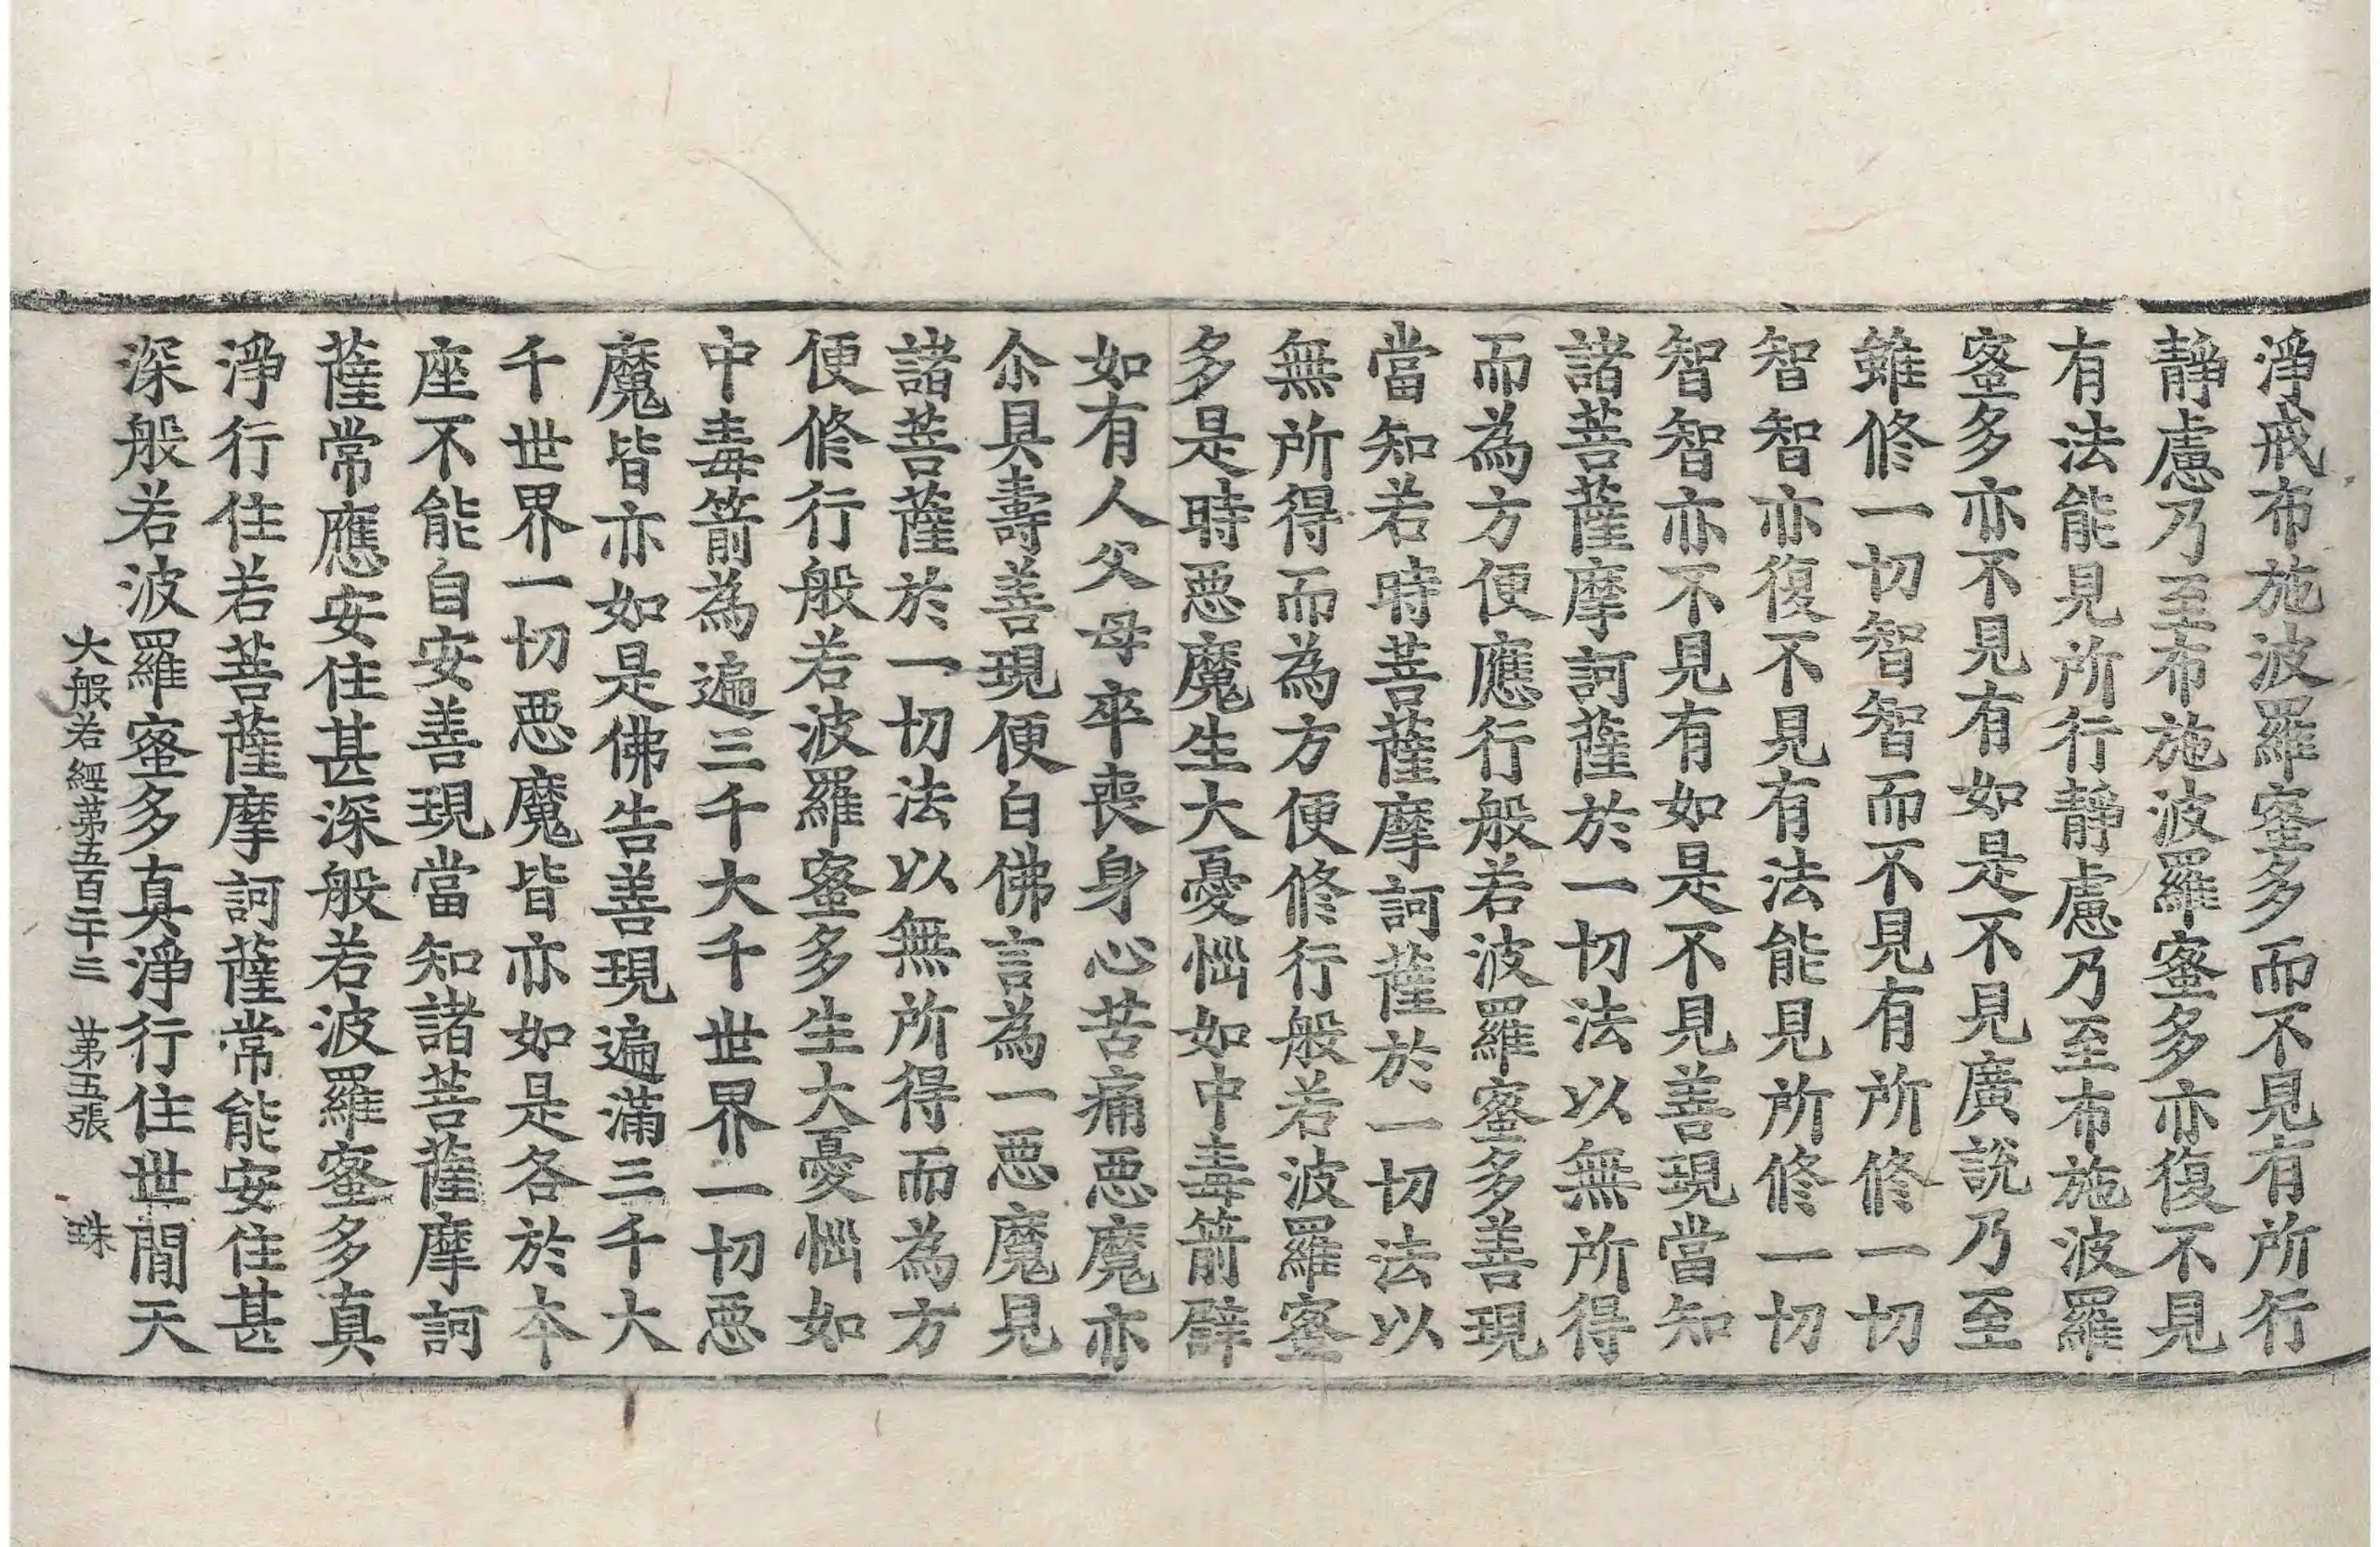 淨戒布施波羅蜜多而不見有所行
靜慮乃至布施波羅蜜多亦復不見
有法能見所行靜慮乃至布施波羅
蜜多亦不見有如是不見廣說乃至
雖修一切智智而不見有所修一切
智智亦復不見有法能見所修一切
智智亦不見有如是不見善現當知
諸菩薩摩訶薩於一切法以無所得
而為方便應行般若波羅蜜多善現
當知若時菩薩摩訶薩於一切法以
無所得而為方便修行般若波羅蜜
多是時惡魔生大憂惱如中毒箭譬
如有人父母卒喪身心苦痛惡魔亦
尒具壽善現便白佛言為一惡魔見
諸菩薩於一切法以無所得而為方
便修行般若波羅蜜多生大憂惱如
中毒箭為遍三千大千世界一切惡
魔皆亦如是佛告善現遍滿三千大
千世界一切惡魔皆亦如是各於本
座不能自安善現當知諸菩薩摩訶
薩常應安住甚深般若波羅蜜多真
淨行住若菩薩摩訶薩常能安住甚
深般若波羅蜜多真淨行住世間天
大般若經第五百二十三 第五張 珠